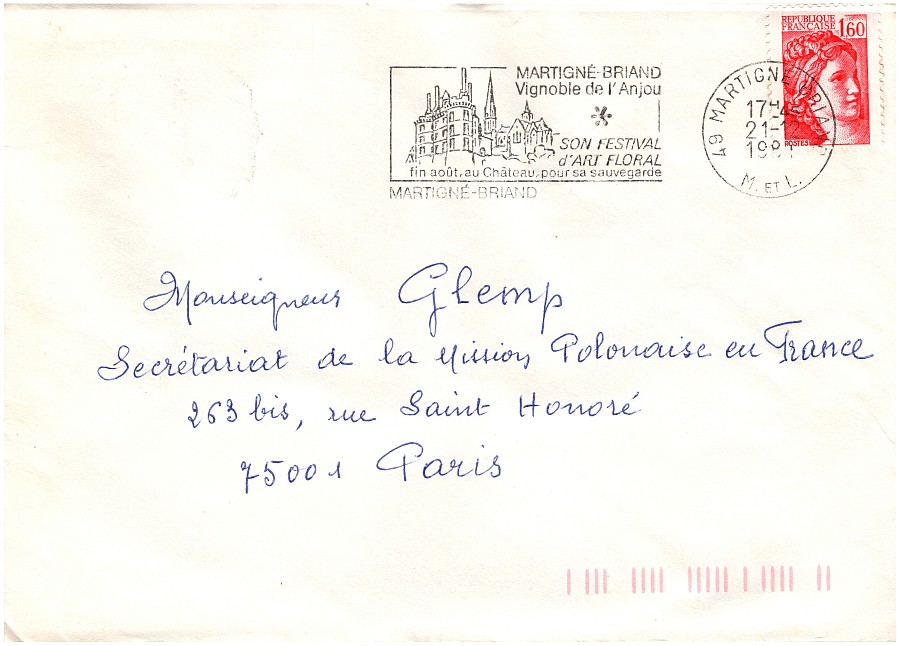 RÉPUBLIQUE
FRANÇAISE 1,60
POSTES
MARTIGNÉ-BRIAND
Vignoble de l'Anjou
SON FESTIVAL
d'ART FLORAL
fin août, au Château, pour sa sauvegarde
MARTIGNÉ-BRIAND
49 MARTIGNÉ-BRIAND
17H45
21-12
1981
M. ET L.
Monseigneur Glemp
Secrétariat de la Mission Polonaise en France
263 bis, rue Saint Honoré
75001 Paris